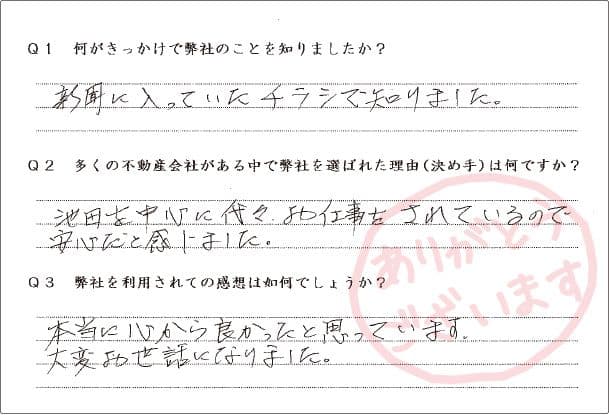 Q1 何がきっかけで弊社のことを知りましたか?
新聞に入っていたチラシで知りました。
Q2 多くの不動産会社がある中で弊社を選ばれた理由(決め手)は何ですか?
池田を中心に代々お仕事をされているので
安心だと感じました。
Q3 弊社を利用されての感想は如何でしょうか?
本当に心から良かったと思っています。
大変お世話になりました。
ありがとう
ございます